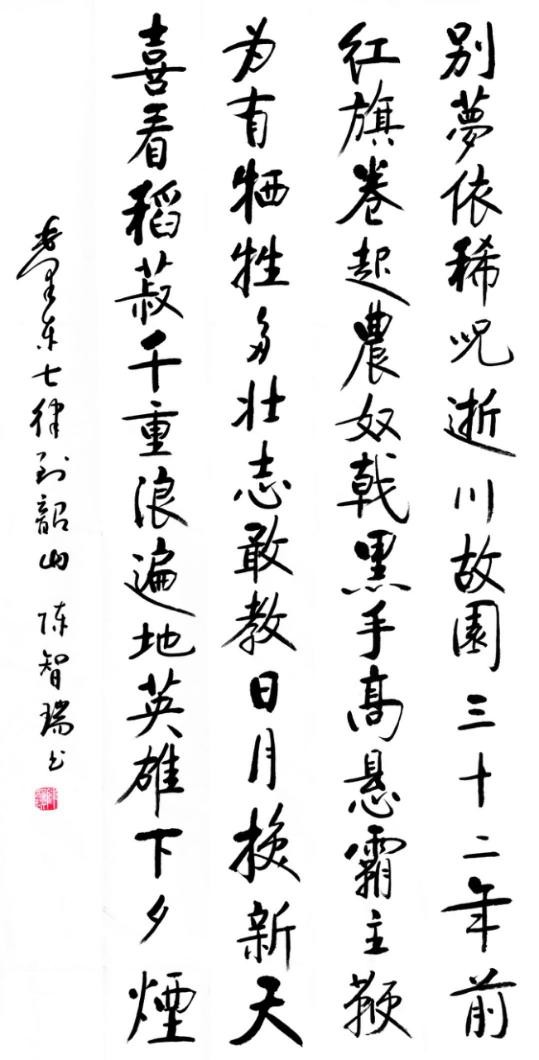 别夢依稀呪逝川故園三十二年前
红旗卷起農奴戟黑手髙悬霸主鞭
为有牺牲多壮志敢教日月换新天
喜看稻菽千重浪遍地英雄下夕煙
毛泽东七律到韶山 陈智瑞书